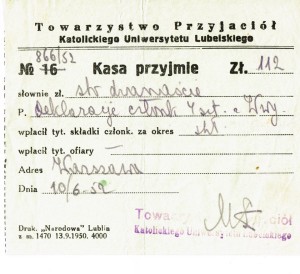 Towarzystwo Przyjaciół
Katolickiego Uniwersytetu Lubelskiego
866/52
№ 16 Kasa przyjmie Zł. 112
słownie zł. sto dwanaście
P. deklaracje członk
wpłacił tyt. składki członk. za okres szt.
wpłacił tyt. ofiary —
Adres Warszawa
Dnia 10/6.52
Druk. „Narodowa" Lublin
z m. 1470 13.9.1950. 4000
Towarz Przyjaciół
Katolickiego Uniwersytetu Lubelskiego